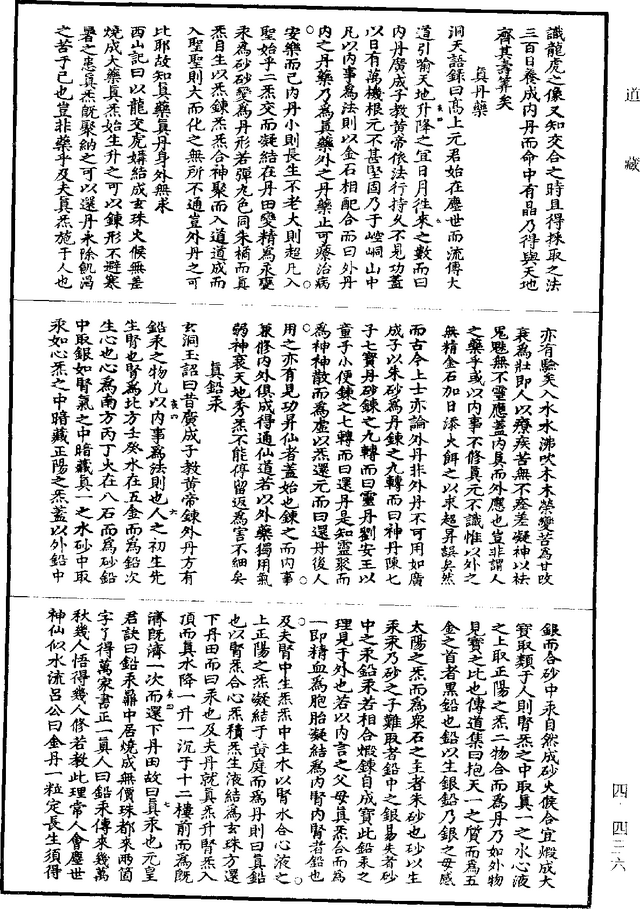 道藏
識龍虎之像又知交合之時且得採取之法
三百日養成內丹而命中有晶乃得與天地
齊其壽筭矣
真丹藥
洞天語錄曰高上元君始在塵世而流傳大
道引喻天地升降之宜日月往來之數而曰
內丹廣成子教黃帝依法行持久不見功蓋
以日有萬機根元不甚堅固乃于崆峒山中
凡以內事為法則以金石相配合而曰外丹
內之丹藥乃為真藥外之丹藥止可療治病
安樂而已內丹小則長生不老大則超凡入
聖始乎二炁交而凝結在丹田變精為汞
汞為砂砂變為丹形若彈丸色同朱橘而真
炁自生以炁鍊炁炁合神聚而入道道成而
入聖聖則大而化之無所不通豈外丹之可
比耶故知真藥真丹身外無求
西山記曰以龍交虎媾結成玄珠火候無差
燒成大藥真炁始生升之可以鍊形不避寒
暑之患真炁既聚納之可以還丹永除飢渴
之苦于己也豈非藥乎及夫真炁施于人也
亦有驗矣入水水沸吹木木榮變苦為甘改
衰為壯即人以療疾苦無不痊差凝神以祛
鬼魅無不靈應蓋內真而外應也豈非謂人
之藥乎或以內事不修真元不識惟以外之
無精金石加日添火餌之以求超昇誤矣然
而古今上士亦論外丹非外丹不可用如廣
成子以朱砂為丹鍊之九轉而曰神丹陳七
子七寶丹砂鍊之九轉而曰靈丹劉安王以
童子小便鍊之七轉而曰還丹是知靈聚而
為神神散而為虛以炁還元而曰還丹後人
用之亦有見功昇仙者蓋始也鍊之而內事
兼修內外俱成得通仙道若以外藥獨用氣
弱神衰天地秀炁不能停留返為害不細矣
真鉛汞
玄洞玉詔曰昔廣成子教黃帝鍊外丹方有
鉛汞之物凡以內事為法則也人之初生先
生腎也腎為北方壬癸水在五金而為鉛次
生心也心為南方丙丁火在八石而為砂鉛
中取銀如腎氣之中暗藏真一之水砂中取
汞如心炁之中暗藏正陽之炁蓋以外鉛中
銀而合砂中汞自然成砂火候合宜煅成大
寶取類于人則腎炁之中取真一之水心液
之上取正陽之炁二物合而為丹乃如外物
見寶之比也傳道集曰抱天一之質而為五
金之首者黑鉛也鉛以生銀鉛乃銀之母感
太陽之炁而為衆石之主者朱砂也砂以生
汞汞乃砂之子難取者鉛中之銀易失者砂
中之汞鉛汞若相合煅鍊自成寶此鉛汞之
理見于外也若以內言之父母真炁合而為
一即精血為胞胎凝結為內腎內腎者鉛也
及夫腎中生炁炁中生水以腎水合心液之
上正陽之炁凝結于黃庭而為丹則曰真鉛
也以腎炁合心炁積炁生液結為玄珠方還
下丹田而曰汞也及夫丹就真炁升腎炁入
頂而真水降一升一沉于十二樓前而為既
濟既濟一次而還下丹田故曰真汞也元皇
君訣曰鉛汞鼎中居燒成無價珠都來兩箇
字了得萬家書正一真人曰鉛汞傳來幾萬
秋幾人悟得幾人修若教此理常人會塵世
神仙似水流呂公曰金丹一粒定長生須得
四·四三六